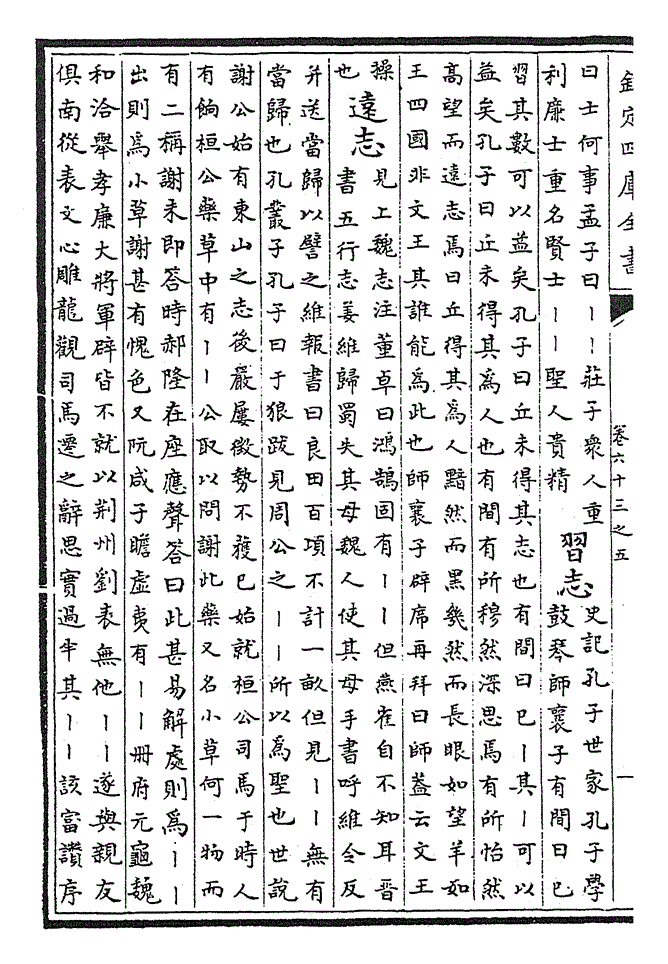 欽定四庫全書
卷六十三之五
一
曰士何事孟子曰丨丨莊子衆人重
利廉士重名賢士丨丨聖人貴精
習志
史記孔子世家孔子學
鼓琴師襄子有間曰已
習其數可以益矣孔子曰丘未得其志也有間曰已丨其丨可以
益矣孔子曰丘未得其爲人也有間有所穆然深思焉有所怡然
高望而遠志焉曰丘得其爲人黯然而黑幾然而長眼如望羊如
王四國非文王其誰能爲此也師襄子辟席再拜曰師蓋云文王
操
也
遠志
見上魏志注董卓曰鴻鵠固有丨丨但燕雀自不知耳晉
書五行志姜維歸蜀失其母魏人使其母手書呼維令反
并送當歸以譬之維報書曰良田百項不計一畝但見丨丨無有
當歸也孔叢子孔子曰于狼跋見周公之丨丨所以爲聖也世說
謝公始有東山之志後嚴屢徴勢不獲已始就桓公司馬于時人
有餉桓公藥草中有丨丨公取以問謝此藥又名小草何一物而
有二稱謝未即答時郝隆在座應聲答曰此甚易解處則爲丨丨
出則爲小草謝甚有愧色又阮咸子瞻虛夷有丨丨冊府元龜魏
和洽舉孝廉大將軍辟皆不就以荆州劉表無他丨丨遂與親友
俱南從表文心雕龍觀司馬遷之辭思實過半其丨丨該富讚序